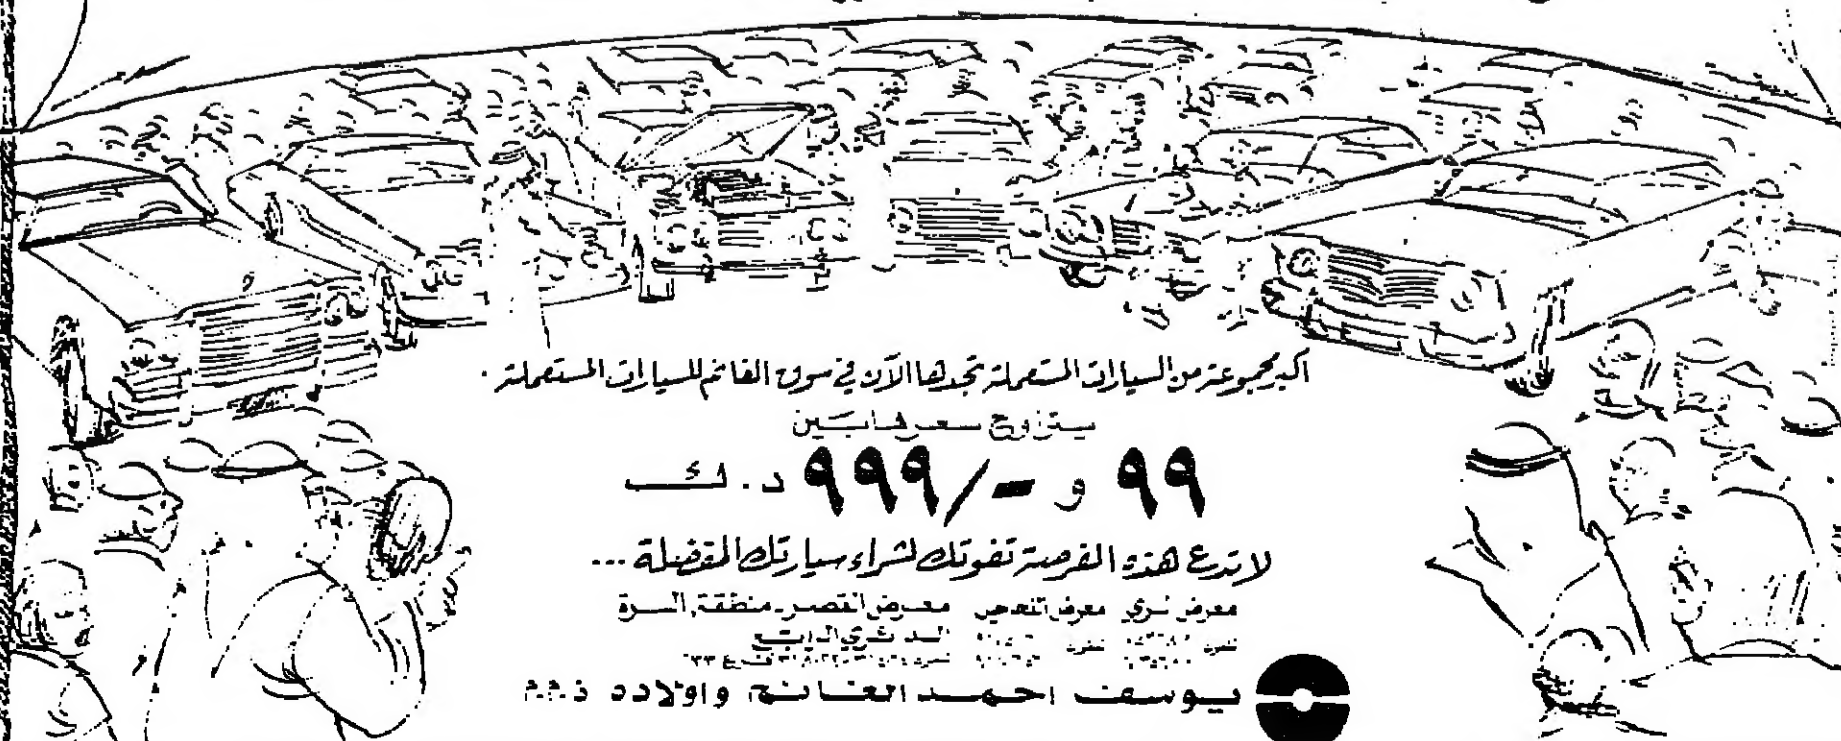 أكبر مجموعة من السيارات المستعملة تجدها الآن في سوق الغانم للسيارات المستعملة .
يتراوح سعرها بين
٩٩ و -/٩٩٩ د. ك
لا تدع هذه الفرصة تفوتك لشراء سيارتك المفضلة ...
معرض معرض الفحيحيل معرض القصر - منطقة السرة
الدائري الرابع
يوسف احمد الغانم واولاده ذ.م.م